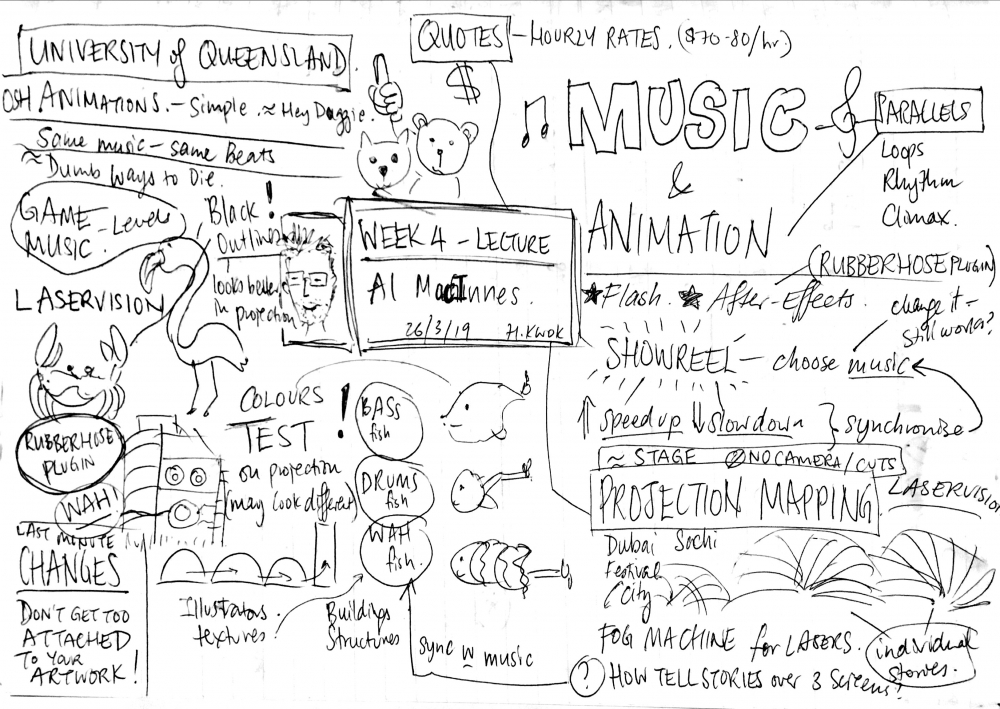 UNIVERSITY of QUEENSLAND.
OSH ANIMATIONS. – Simple. ≈ Hey Duggie.
Same music – same Beats
≈ Dumb Ways to Die.
GAME – Levels
MUSIC.
Black!
Outlines
looks better
in projection
LASERVISION
RUBBERHOSE
PLUGIN
WAH!
LAST MINUTE
CHANGES
DON'T GET TOO
ATTACHED
TO YOUR
ARTWORK!
QUOTES – HOURLY RATES. ($70-80/hr)
$
WEEK 4 – LECTURE
Al MacInnes.
26/3/19 H.KWOK
COLOURS
TEST!
on projection
(may look different)
BASS
fish
DRUMS
fish
WAH
fish.
Illustrators.
textures
Buildings
Structures
sync w music
MUSIC
&
ANIMATION
PARALLELS
Loops
Rhythm
Climax.
(RUBBERHOSE PLUGIN)
★ Flash. ★ After-Effects.
change it –
still works?
SHOWREEL – choose music
↑ speed up ↓ slow down } synchronise
≈ STAGE NO CAMERA/CUTS
PROJECTION MAPPING
LASERVISION
Dubai Sochi
Festival
City
FOG MACHINE for LASERS.
individual
stories.
? HOW TELL STORIES over 3 Screens?